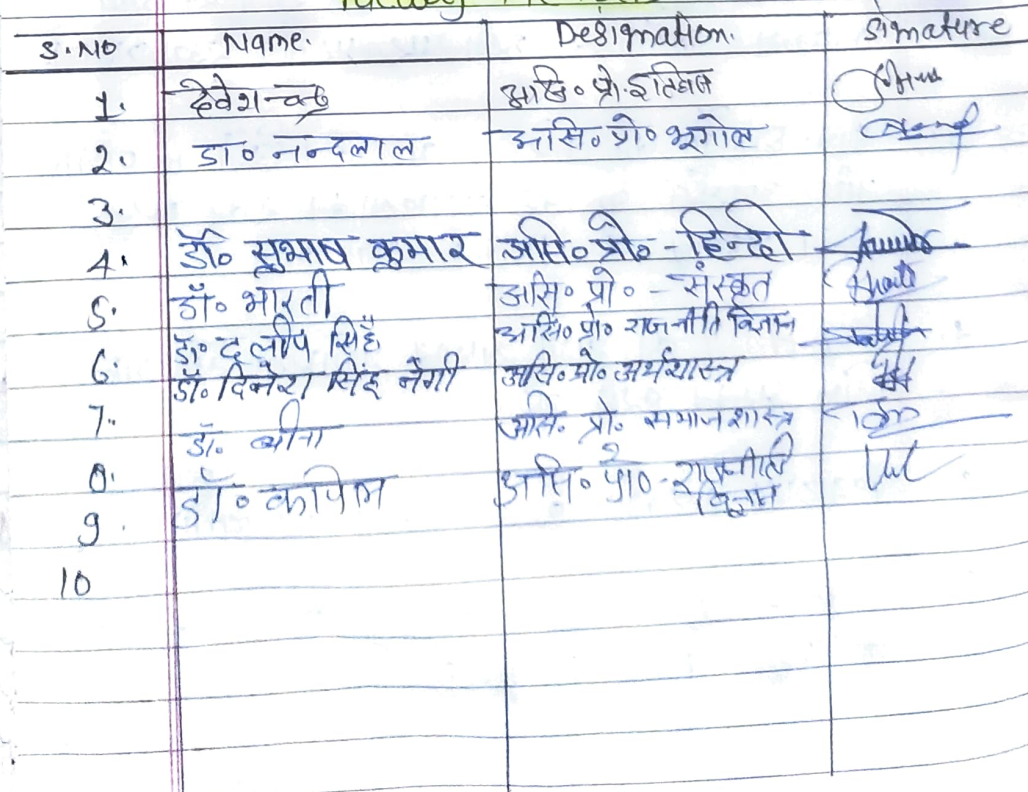 Faculty
S.NO Name. Designation. Signature
1. देवेश चन्द्र असि० प्रो. इतिहास
2. डा० नन्दलाल असि० प्रो० भूगोल
3.
4. डॉ० सुभाष कुमार असि० प्रो० - हिन्दी
5. डॉ० भारती असि० प्रो० - संस्कृत
6. डॉ० दलीप सिंह असि० प्रो० राजनीति विज्ञान
डॉ. दिनेश सिंह नेगी असि० प्रो० अर्थशास्त्र
7. डॉ. असि. प्रो. समाजशास्त्र
8. डॉ० कपिल असि० प्रो० - राजनीति
विज्ञान
9.
10